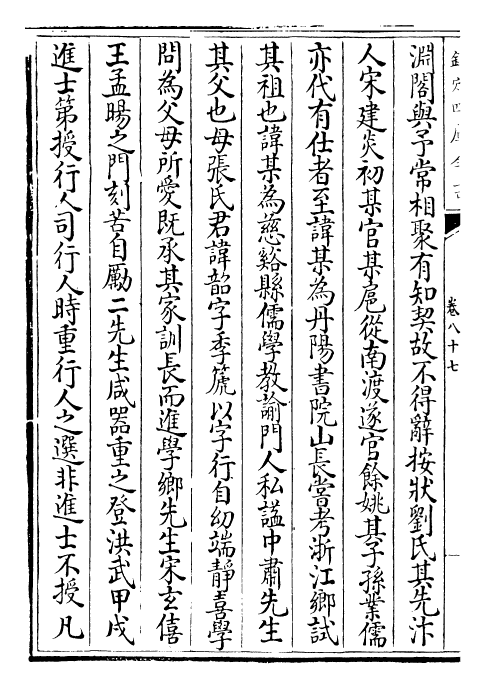 欽定四庫全書
卷八十七
淵閣與予常相聚有知契故不得辭按狀劉氏其先汴
人宋建炎初某官某扈從南渡遂官餘姚其子孫業儒
亦代有仕者至諱某為丹陽書院山長嘗考浙江鄉試
其祖也諱某為慈谿縣儒學教諭門人私諡中肅先生
其父也母張氏君諱韶字季篪以字行自幼端靜喜學
問為父母所愛既承其家訓長而進學鄉先生宋玄僖
王孟暘之門刻苦自勵二先生咸器重之登洪武甲戌
進士第授行人司行人時重行人之選非進士不授凡